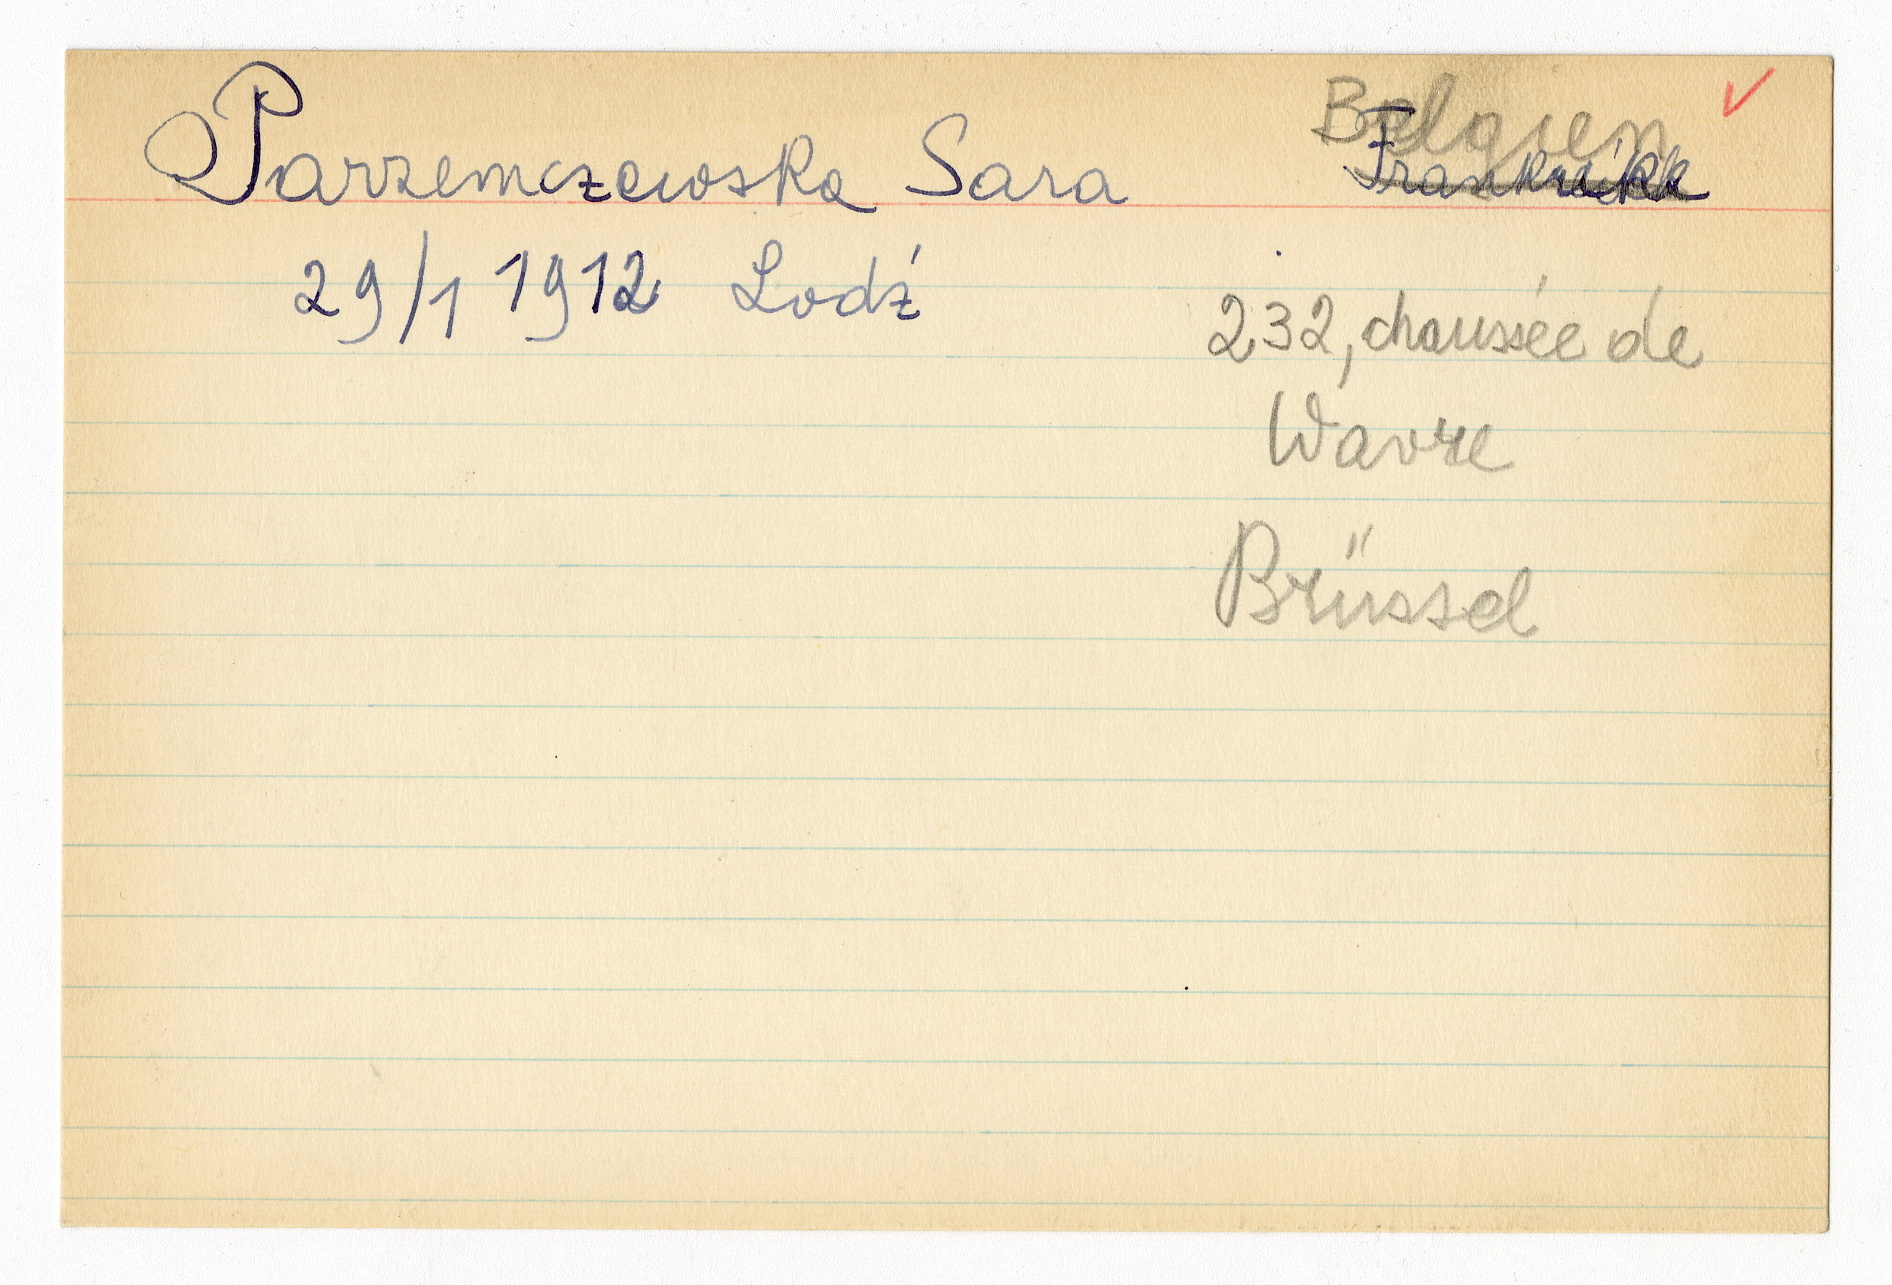 Parzemczewska Sara
Belgien
Frankreich
29/1 1912 Lodź
232, chaussée de
Wavre
Brüssel